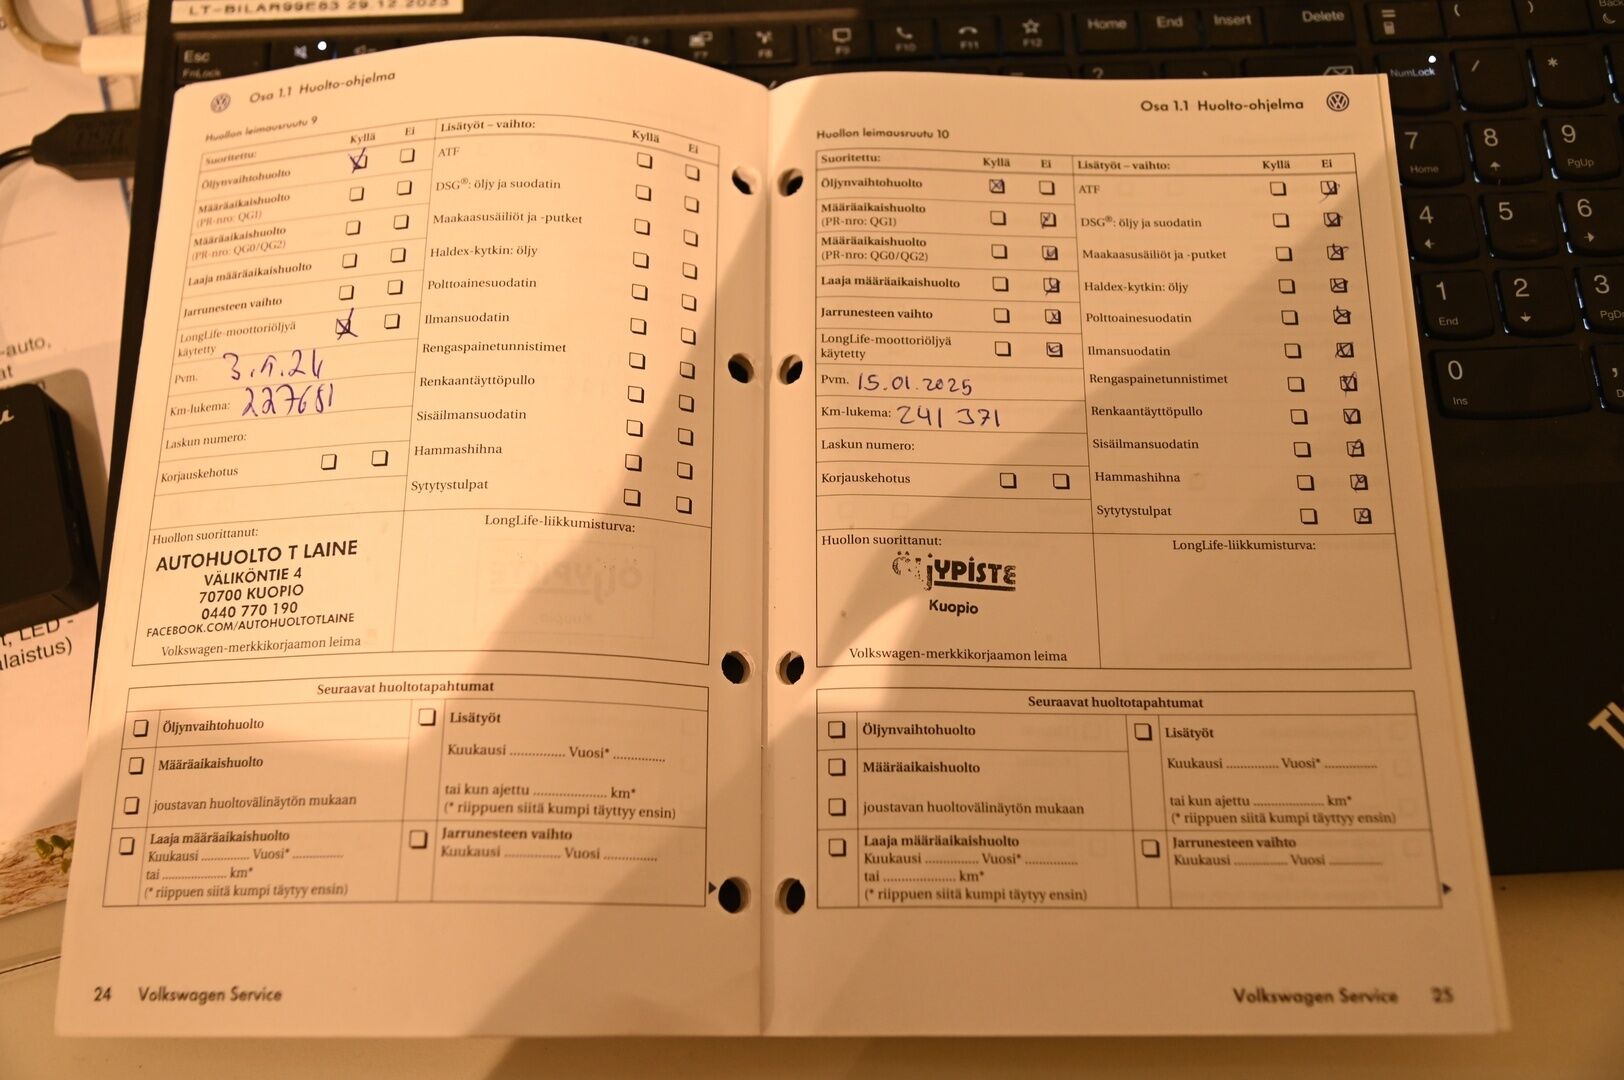 LT-BILAR99E83 29.12.2023
Esc
FnLock
F7
F8
F9
F10
F11
F12
Home
End
Insert
Delete
NumLock
/
*
7
Home
8
9
PgUp
4
5
6
1
End
2
3
0
Ins
-auto,
t, LED -
alaistus)
Osa 1.1 Huolto-ohjelma
Huollon leimausruutu 9
Suoritettu:
Kyllä
Ei
Öljynvaihtohuolto
Määräaikaishuolto
(PR-nro: QG1)
Määräaikaishuolto
(PR-nro: QG0/QG2)
Laaja määräaikaishuolto
Jarrunesteen vaihto
LongLife-moottoriöljyä
käytetty
Pvm.
Km-lukema: 227681
Laskun numero:
Korjauskehotus
Lisätyöt – vaihto:
Kyllä
Ei
ATF
DSG®: öljy ja suodatin
Maakaasusäiliöt ja -putket
Haldex-kytkin: öljy
Polttoainesuodatin
Ilmansuodatin
Rengaspainetunnistimet
Renkaantäyttöpullo
Sisäilmansuodatin
Hammashihna
Sytytystulpat
Huollon suorittanut:
AUTOHUOLTO T LAINE
VÄLIKÖNTIE 4
70700 KUOPIO
0440 770 190
FACEBOOK.COM/AUTOHUOLTOTLAINE
Volkswagen-merkkikorjaamon leima
LongLife-liikkumisturva:
Seuraavat huoltotapahtumat
Öljynvaihtohuolto
Määräaikaishuolto
joustavan huoltovälinäytön mukaan
Laaja määräaikaishuolto
Kuukausi .............. Vuosi* ..............
tai .................... km*
(* riippuen siitä kumpi täytyy ensin)
Lisätyöt
Kuukausi .............. Vuosi* ..............
tai kun ajettu .................... km*
(* riippuen siitä kumpi täyttyy ensin)
Jarrunesteen vaihto
Kuukausi .............. Vuosi ..............
24 Volkswagen Service
Osa 1.1 Huolto-ohjelma
Huollon leimausruutu 10
Suoritettu:
Kyllä
Ei
Öljynvaihtohuolto
Määräaikaishuolto
(PR-nro: QG1)
Määräaikaishuolto
(PR-nro: QG0/QG2)
Laaja määräaikaishuolto
Jarrunesteen vaihto
LongLife-moottoriöljyä
käytetty
Pvm. 15.01.2025
Km-lukema: 241 371
Laskun numero:
Korjauskehotus
Lisätyöt – vaihto:
Kyllä
Ei
ATF
DSG®: öljy ja suodatin
Maakaasusäiliöt ja -putket
Haldex-kytkin: öljy
Polttoainesuodatin
Ilmansuodatin
Rengaspainetunnistimet
Renkaantäyttöpullo
Sisäilmansuodatin
Hammashihna
Sytytystulpat
Huollon suorittanut:
ÖljyPISTE
Kuopio
Volkswagen-merkkikorjaamon leima
LongLife-liikkumisturva:
Seuraavat huoltotapahtumat
Öljynvaihtohuolto
Määräaikaishuolto
joustavan huoltovälinäytön mukaan
Laaja määräaikaishuolto
Kuukausi .............. Vuosi* ..............
tai .................... km*
(* riippuen siitä kumpi täytyy ensin)
Lisätyöt
Kuukausi .............. Vuosi* ..............
tai kun ajettu .................... km*
(* riippuen siitä kumpi täyttyy ensin)
Jarrunesteen vaihto
Kuukausi .............. Vuosi ..............
Volkswagen Service 25